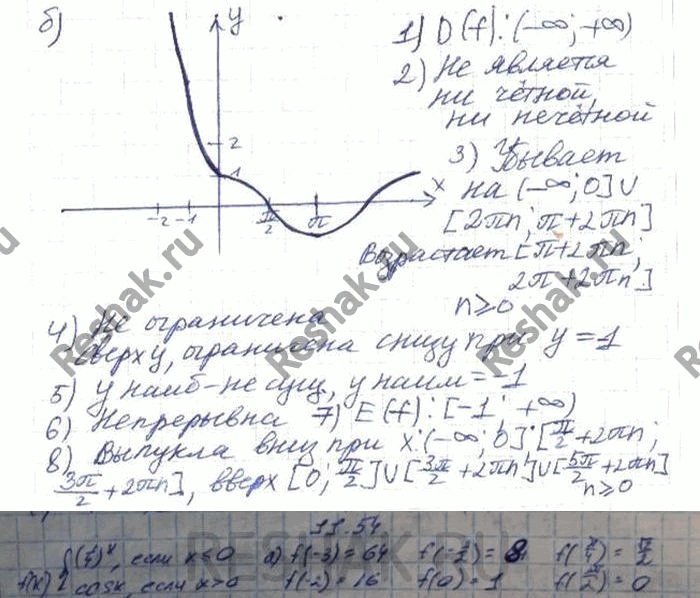 б)
y
2
1
-2 -1
π/2
π
x
1) D(f): (-∞; +∞)
2) Не является
ни чётной,
ни нечётной
3) Убывает
на (-∞; 0] ∪
[2πn; π+2πn]
Возрастает [π+2πn;
2π+2πn]
n≥0
4) Не ограничена
сверху, ограничена снизу при y=-1
5) y наиб-не сущ, y наим=-1
6) Непрерывна 7) E(f): [-1; +∞)
8) Выпукла вниз при x: (-∞; 0] [π/2+2πn;
3π/2+2πn], вверх [0; π/2]∪[3π/2+2πn]∪[5π/2+2πn]
n≥0
11.54
f(x) { (1/4)^x, если x≤0 а) f(-3)=64 f(-1/2)=8 f(π/4)=
cosx, если x>0 f(-2)=16 f(0)=1 f(π/2)=0
Reshak.ru
Reshak.ru
Reshak.ru
Reshak.ru
RESHAK.RU